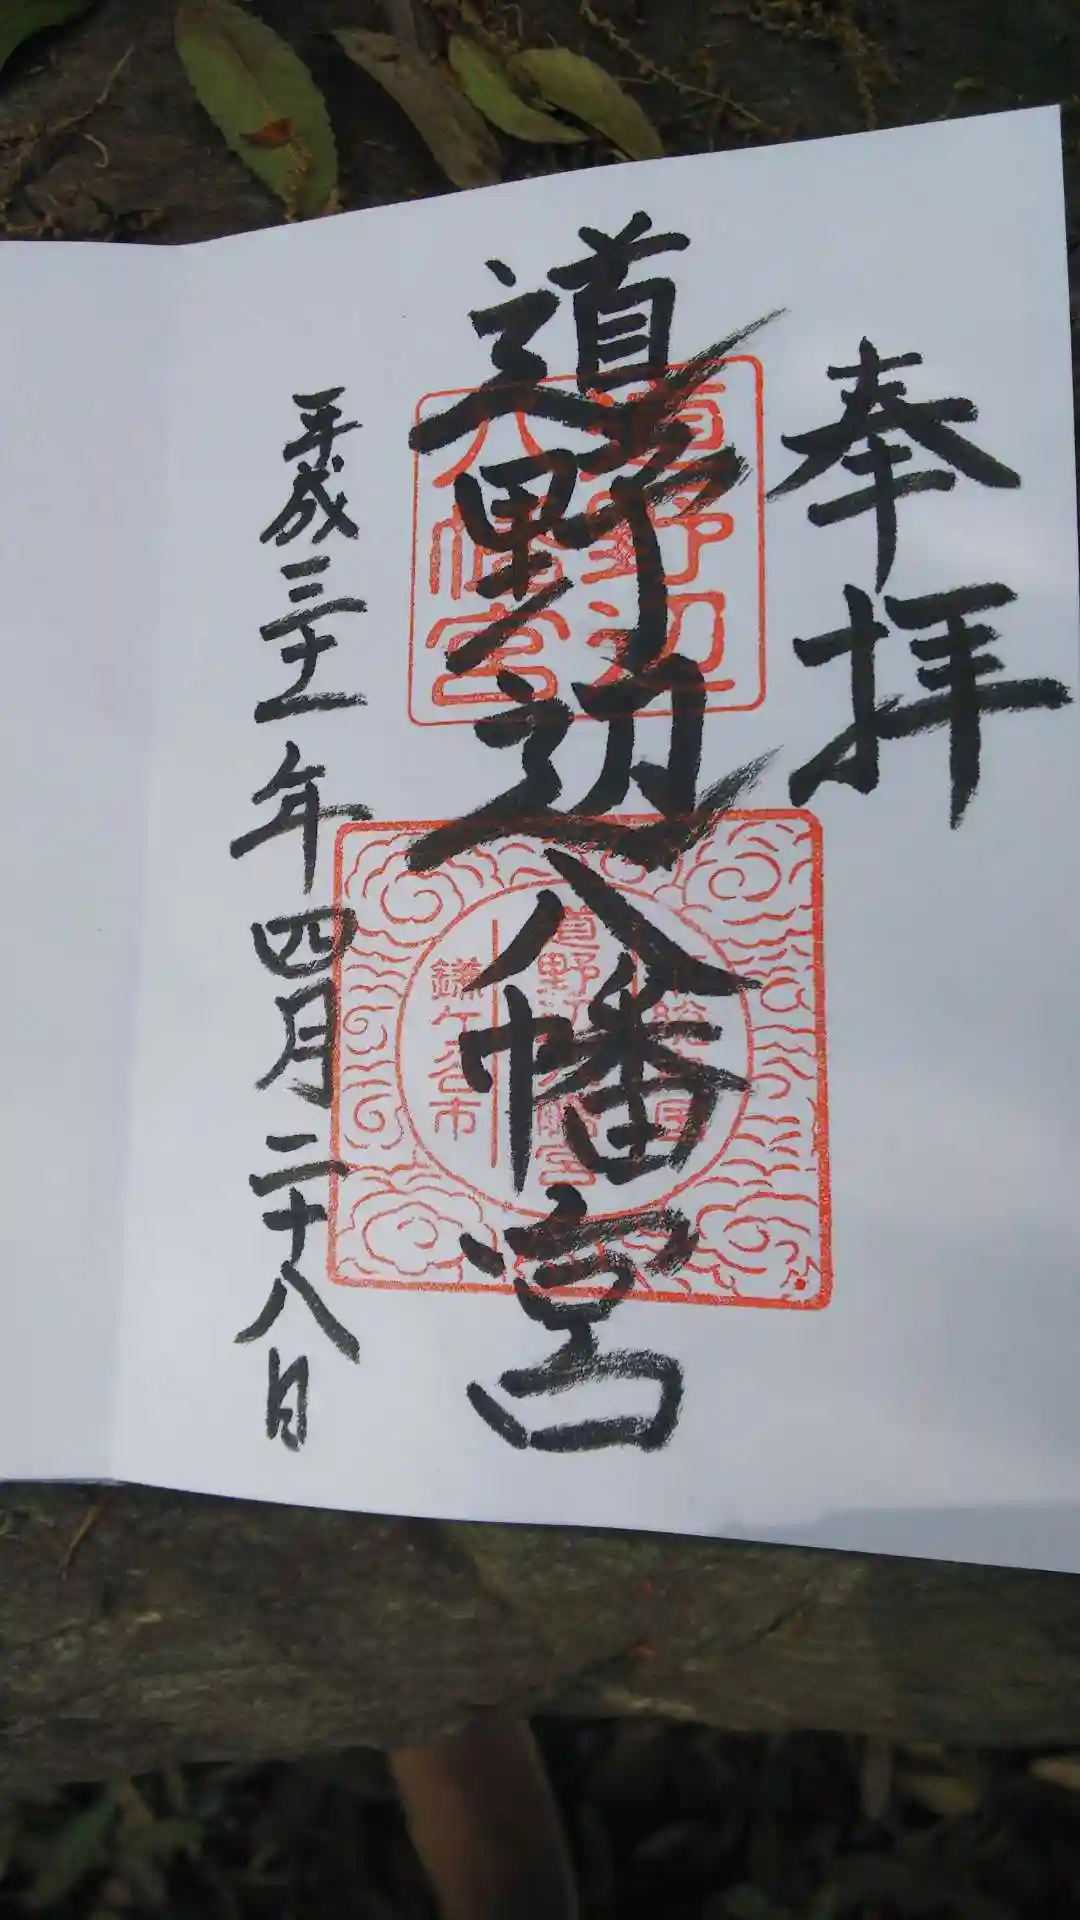 奉拝
道野辺八幡宮
道野辺
八幡宮
鎌ケ谷市
平成三十一年四月二十八日